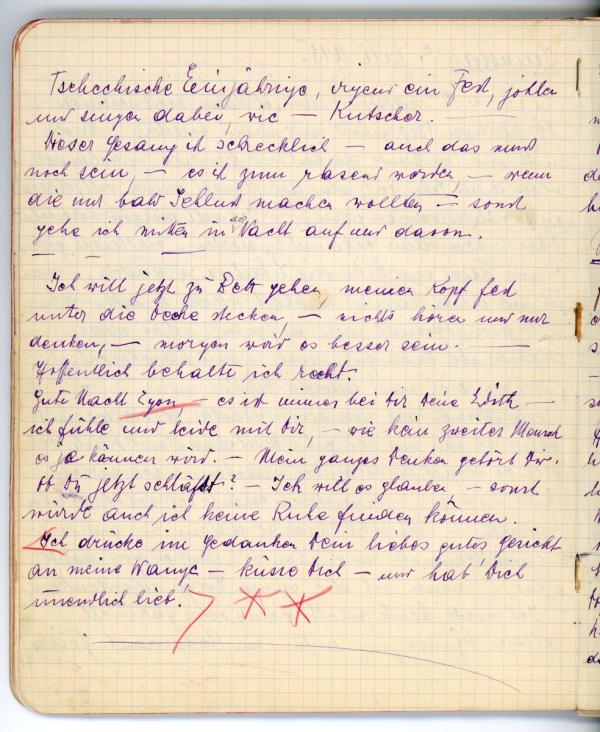 Tschechische Einjährige, irgend ein Fest, johlen
und singen dabei, wie — Kutscher. —
Dieser Gesang ist schrecklich — auch das muß
noch sein, — es ist zum rasend werden, — wenn
die nur bald Schluß machen wollten — sonst
gehe ich mitten in der Nacht auf und davon.
— — —
Ich will jetzt zu Bett gehen, meinen Kopf fest
unter die Decke stecken, — nichts hören und nur
denken, — morgen wird es besser sein. —
Hoffentlich behalte ich recht.
Gute Nacht Egon, — es ist immer bei Dir Deine Edith —
ich fühle und leide mit Dir, — wie kein zweiter Mensch
es je können wird. — Mein ganzes Denken gehört Dir.
Ob Du jetzt schläfst? — Ich will es glauben, — sonst
würde auch ich keine Ruhe finden können.
Ich drücke im Gedanken Dein liebes gutes Gesicht
an meine Wange — küsse Dich — und hab' Dich
unendlich lieb!